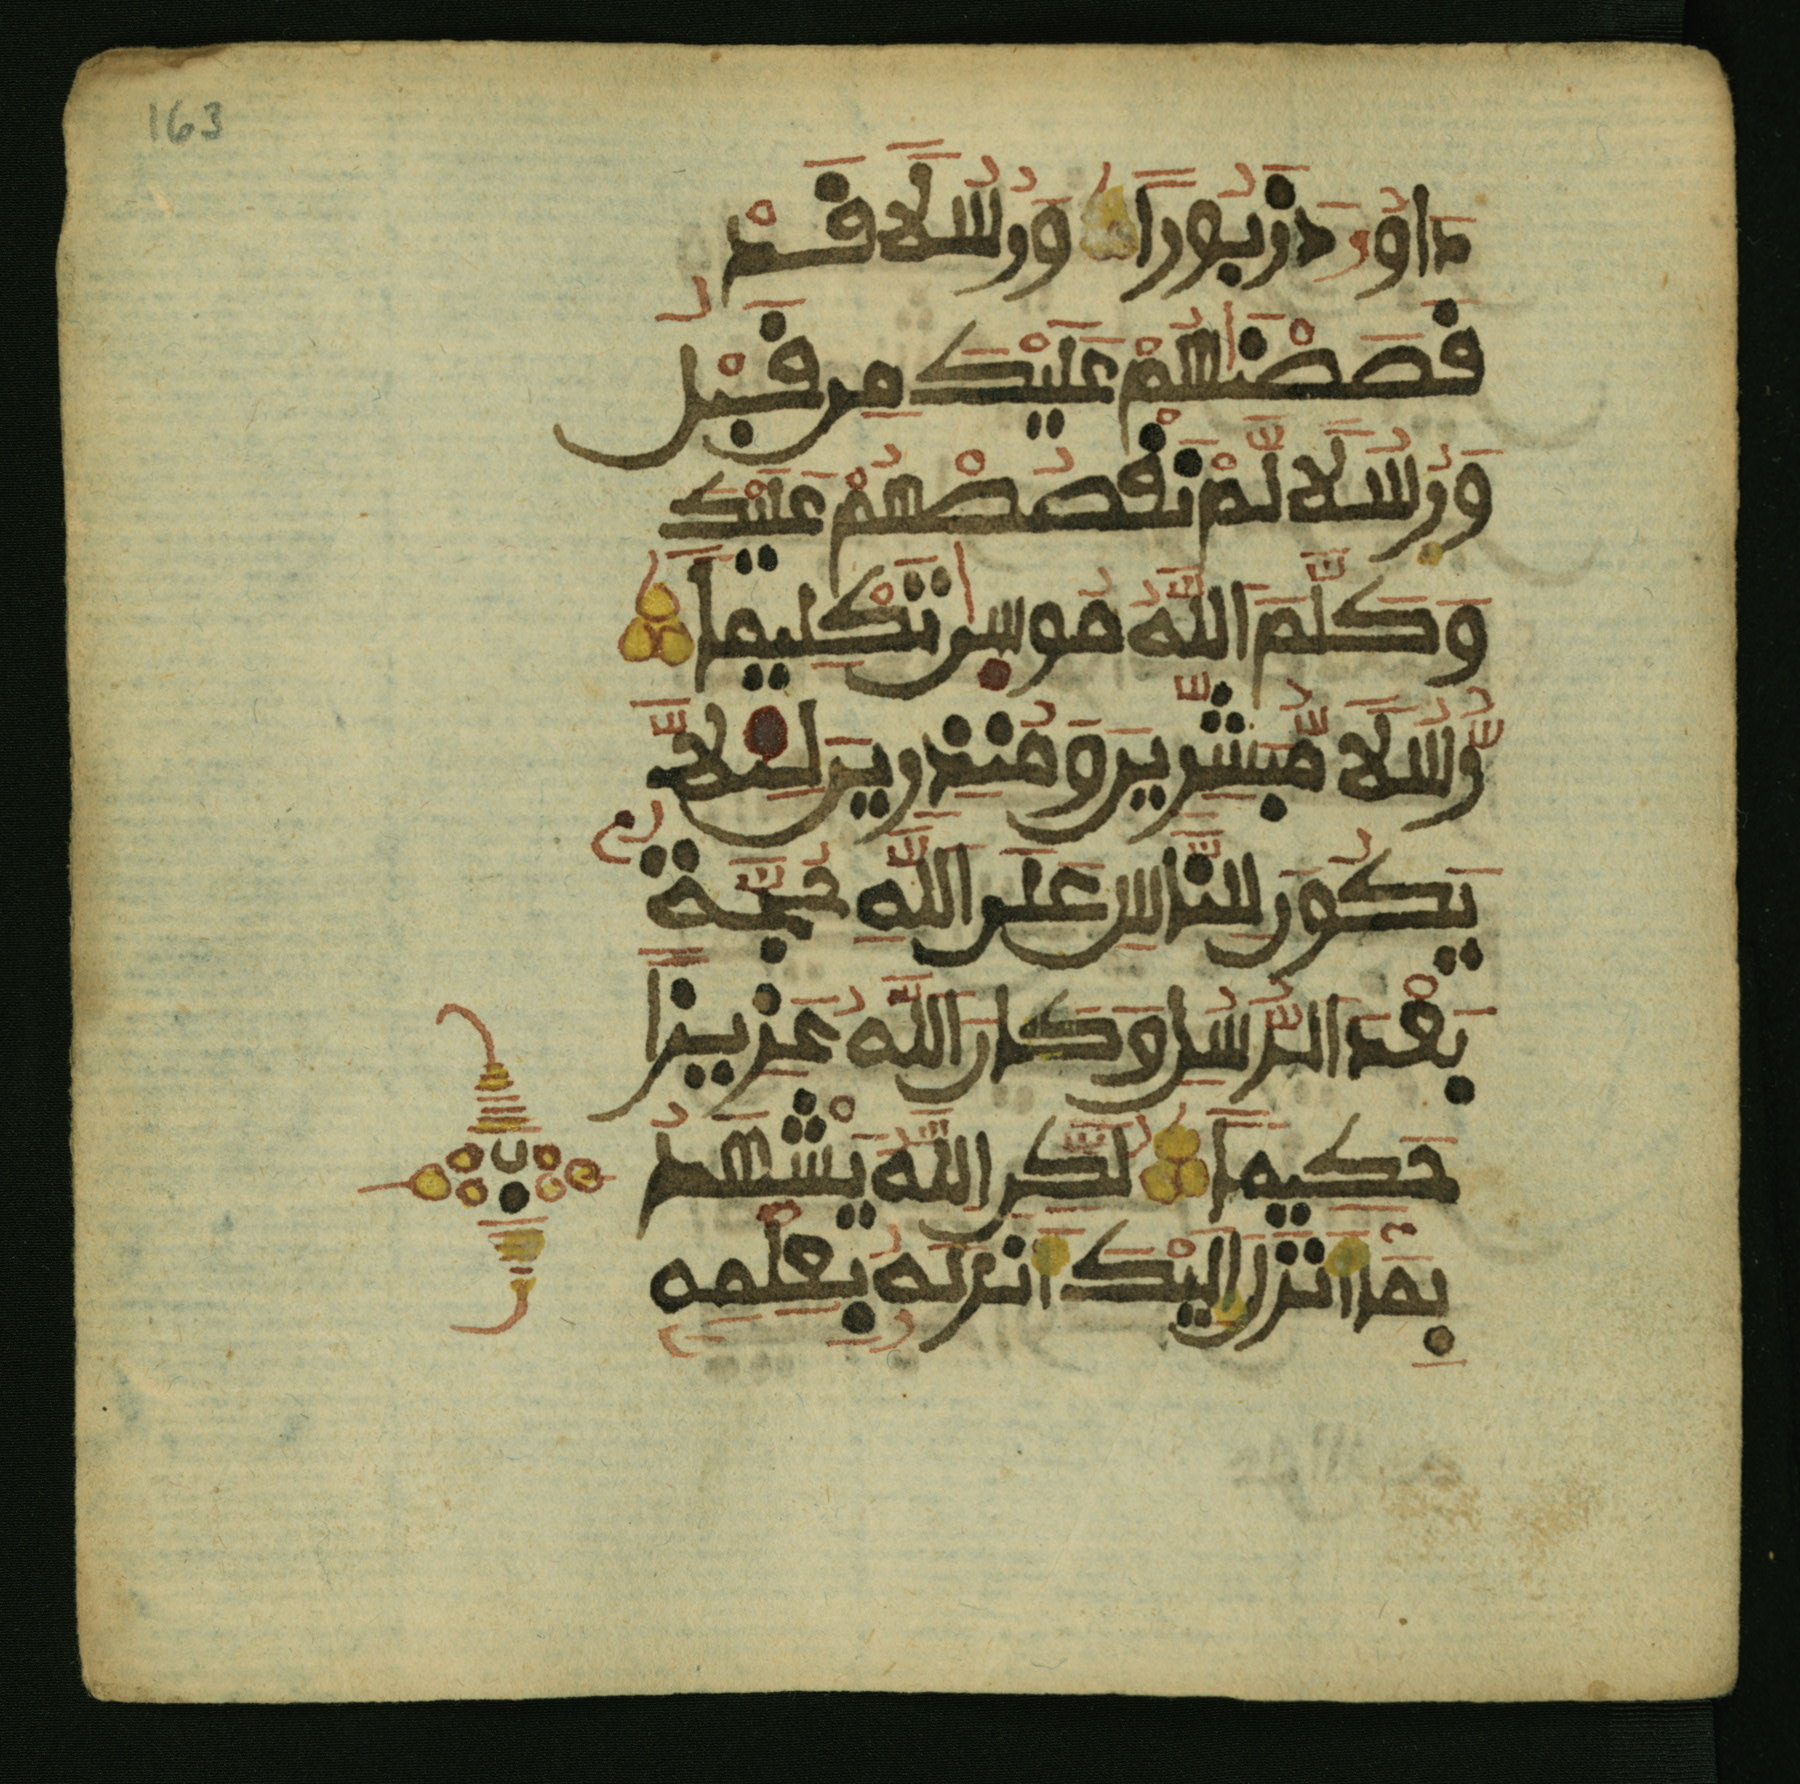 163
دَاوُۥدَ زَبُورًا وَرُسُلًا قَدْ
قَصَصْنَٰهُمْ عَلَيْكَ مِن قَبْلُ
وَرُسُلًا لَّمْ نَقْصُصْهُمْ عَلَيْكَ
وَكَلَّمَ اللَّهُ مُوسىٰ تَكْلِيمًا
رُّسُلًا مُّبَشِّرِينَ وَمُنذِرِينَ لِئَلَّا
يَكُونَ لِلنَّاسِ عَلَى اللَّهِ حُجَّةٌ
بَعْدَ الرُّسُلِ وَكَانَ اللَّهُ عَزِيزًا
حَكِيمًا لَّكِنِ اللَّهُ يَشْهَدُ
بِمَا أَنزَلَ إِلَيْكَ أَنزَلَهُ بِعِلْمِهِ